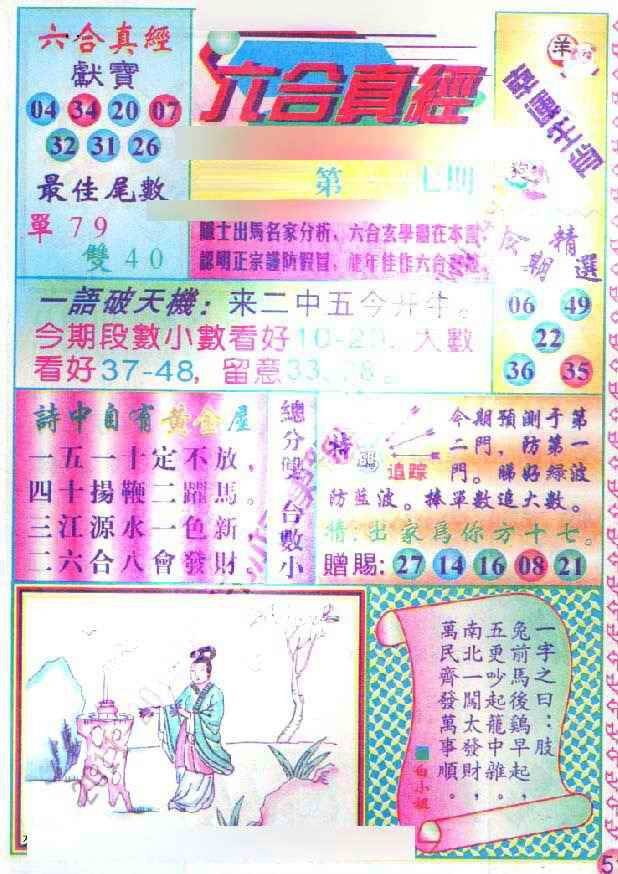 六合真經
獻寶
04 34 20 07
32 31 26
最佳尾數
單79
雙40
六合真經
第
七期
士出馬名家分析，六合玄學盡在本書，
認明正宗謹防假冒，
羊
狗
精選
期
06 49
22
36 35
一語破天機：来二中五今开牛。
今期段數小數看好10-2
大數
看好37-48，留意33
詩中自有黃金屋
一五一十定不放，
四十揚鞭二躍馬。
三江源水一色新，
二六合八會發財。
總分雙
合數小
特碼
追踪
今期預測于第
二門，防第一
門。睇好緑波
防蓝波。捧單數追大數。
猜：出家爲你方十七。
贈賜：27 14 16 08 21
一字之曰：肢
兔前馬後鷄早起，
五更吵起龍中雜。
南北一闖太發財，
萬民齊發萬事順。
白小姐
5